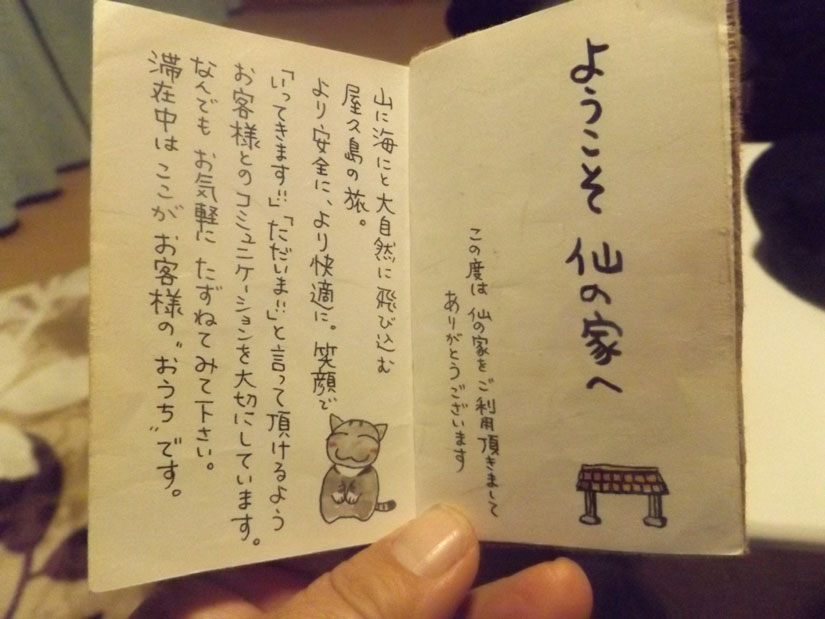 ようこそ 仙の家へ
この度は 仙の家をご利用頂きまして
ありがとうございます
山に海にと大自然に飛び込む
屋久島の旅。
より安全に、より快適に。笑顔で
「いってきます!!」「ただいま!!」と言って頂けるよう
お客様とのコミュニケーションを大切にしています。
なんでも お気軽に たずねてみて下さい。
滞在中は ここが お客様の"おうち"です。